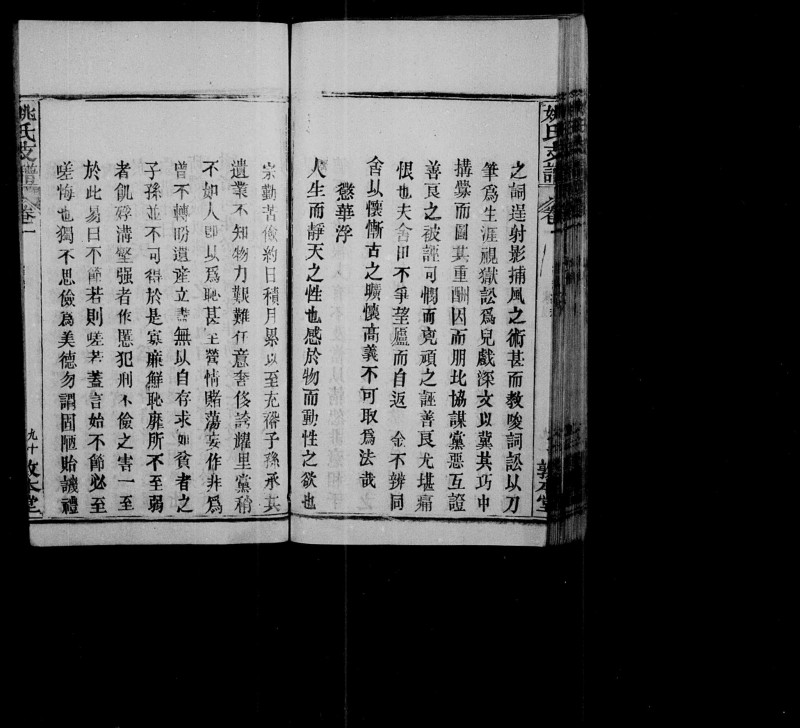 姚氏支譜
卷一
敦本堂
之詞逞射影捕風之術甚而教唆詞訟以刀
筆爲生涯視獄訟爲兒戲深文以冀其巧中
搆釁而圖其重酬因而朋比協謀黨惡互證
善良之被誣可憫而兇頑之誣善良尤堪痛
恨也夫舍田不爭望廬而自返 金不辨同
舍以懷慚古之曠懷高義不可取爲法哉
懲華浮
人生而靜天之性也感於物而動性之欲也
宗勤苦儉約日積月累以至充裕子孫承其
遺業不知物力艱難任意奢侈誇耀里黨稍
不如人卽以爲恥甚至鶯情賭蕩妄作非爲
曾不轉盼遺產立盡無以自存求如貧者之
子孫並不可得於是寡廉鮮恥靡所不至弱
者飢殍溝壑强者作慝犯刑不儉之害一至
於此易曰不節若則嗟若蓋言始不節必至
嗟悔也獨不思儉爲美德勿謂固陋貽譏禮
姚氏支譜
卷一
九十
敦本堂